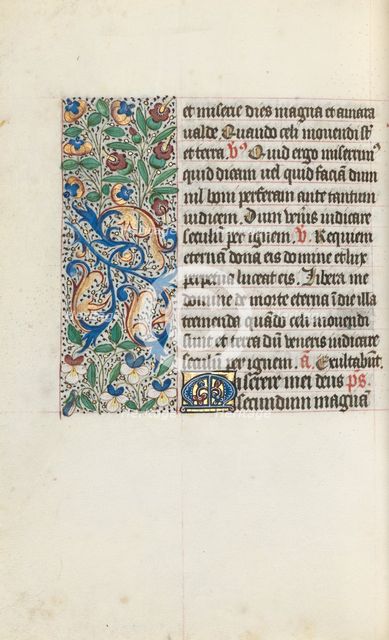 et miserie dies magna et amara
valde Quando celi movendi st
et terra. V. Quid ergo miserrim9
quid dicam vel quid faciā dum
nil boni perferam ante tantum
iudicem. Dum veneris iudicare
seculū per ignem. V. Requiem
eternā dona eis domine et lux
perpetua luceat eis. Libera me
domine de morte eterna ī die illa
tremenda quādo celi movendi
sunt et terra dū veneris iudicare
seculū per ignem. a. Exultabūt.
Miserere mei deus ps
secundum magnā